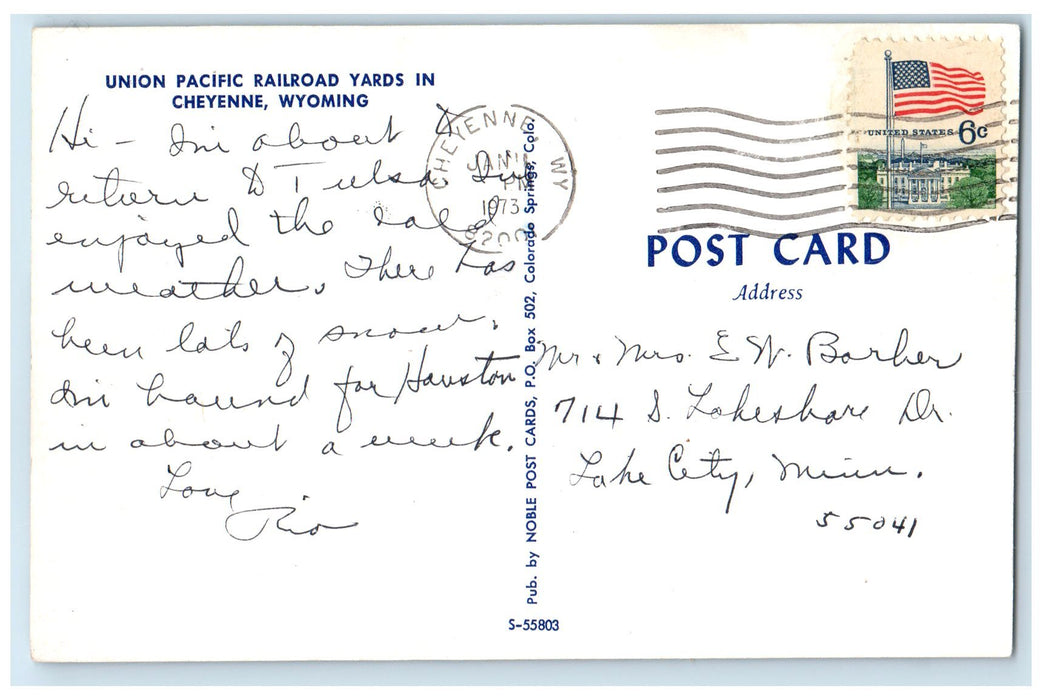 UNION PACIFIC RAILROAD YARDS IN
CHEYENNE, WYOMING
Hi - I'm about to
return to Tulsa. I've
enjoyed the cold
weather. There has
been lots of snow.
I'm bound for Houston
in about a week.
Love
Rio
CHEYENNE, WY
JAN 11
PM
1973
8200
UNITED STATES 6c
POST CARD
Address
Mr & Mrs. E W. Barber
714 S. Lakeshore Dr.
Lake City, Minn.
55041
Pub. by NOBLE POST CARDS, P.O. Box 502, Colorado Springs, Colo.
S-55803